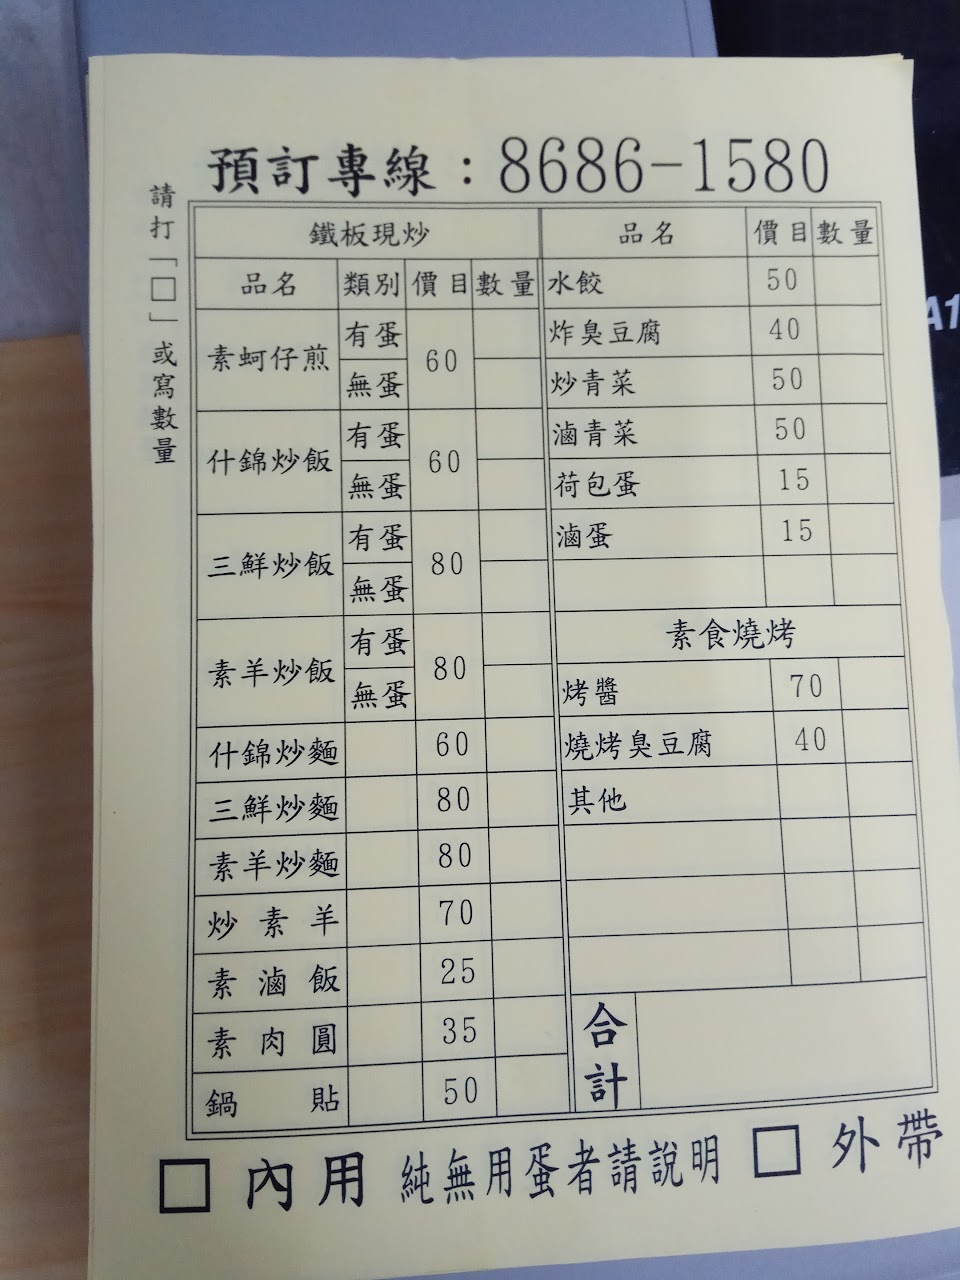 預訂專線：8686-1580
請打「□」或寫數量
鐵板現炒
品名 類別 價目 數量
素蚵仔煎 有蛋 60
無蛋
什錦炒飯 有蛋 60
無蛋
三鮮炒飯 有蛋 80
無蛋
素羊炒飯 有蛋 80
無蛋
什錦炒麵 60
三鮮炒麵 80
素羊炒麵 80
炒素羊 70
素滷飯 25
素肉圓 35
鍋貼 50
品名 價目 數量
水餃 50
炸臭豆腐 40
炒青菜 50
滷青菜 50
荷包蛋 15
滷蛋 15
素食燒烤
烤醬 70
燒烤臭豆腐 40
其他
合計
□ 內用 純無用蛋者請說明 □ 外帶
A1